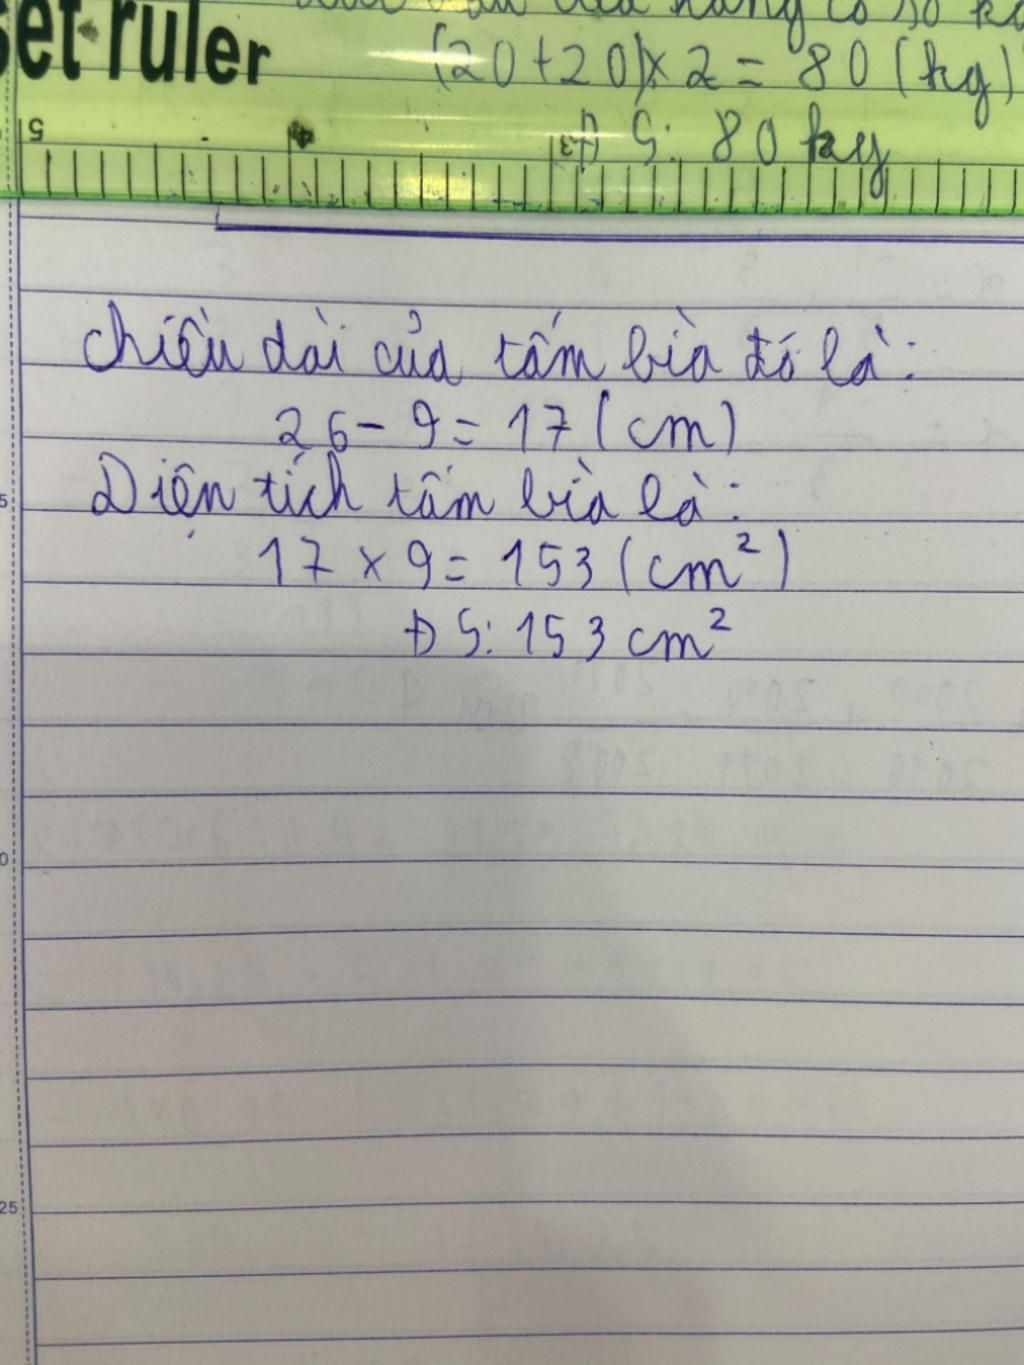 Set ruler
có số
(20+20)×2=80(kg)
5 4 3
ĐS: 80 kg
Chiều dài của tấm bìa đó là:
26-9=17(cm)
5
Diện tích tấm bìa là:
17×9=153(cm²)
ĐS: 153 cm²
0
25